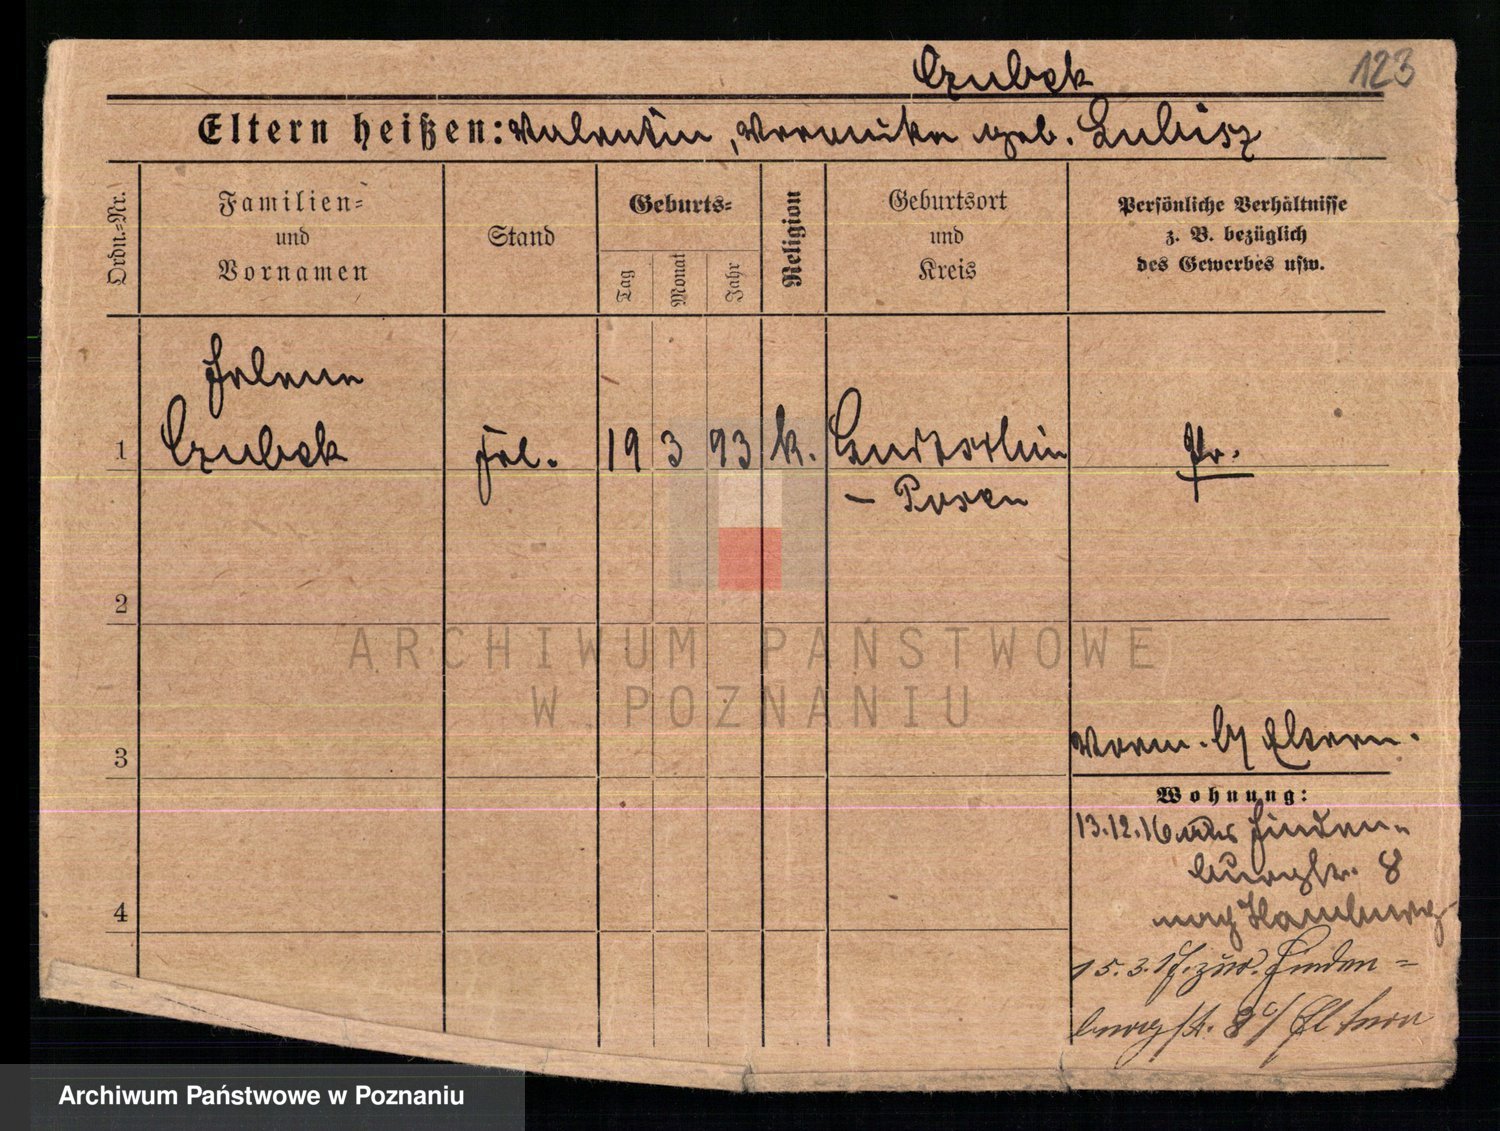 123
Czubek
Eltern heißen: Valentin, Veronika geb. Lubisz
Ordn.-Nr.
Familien- und Vornamen
Stand
Geburts-
Tag
Monat
Jahr
Religion
Geburtsort und Kreis
Persönliche Verhältnisse z. B. bezüglich des Gewerbes usw.
Helene
1 Czubek frl. 19 3 93 k. Gurtschin Pr.
– Posen
2
3
Vorm. b/ Eltern.
Wohnung:
13.12.16 aus Hinden-
burgstr. 8
nach Hamburg
15.3.17. zur. Hinden=
burgst. 8 b/ Eltern
4
ARCHIWUM PAŃSTWOWE
W POZNANIU
Archiwum Państwowe w Poznaniu